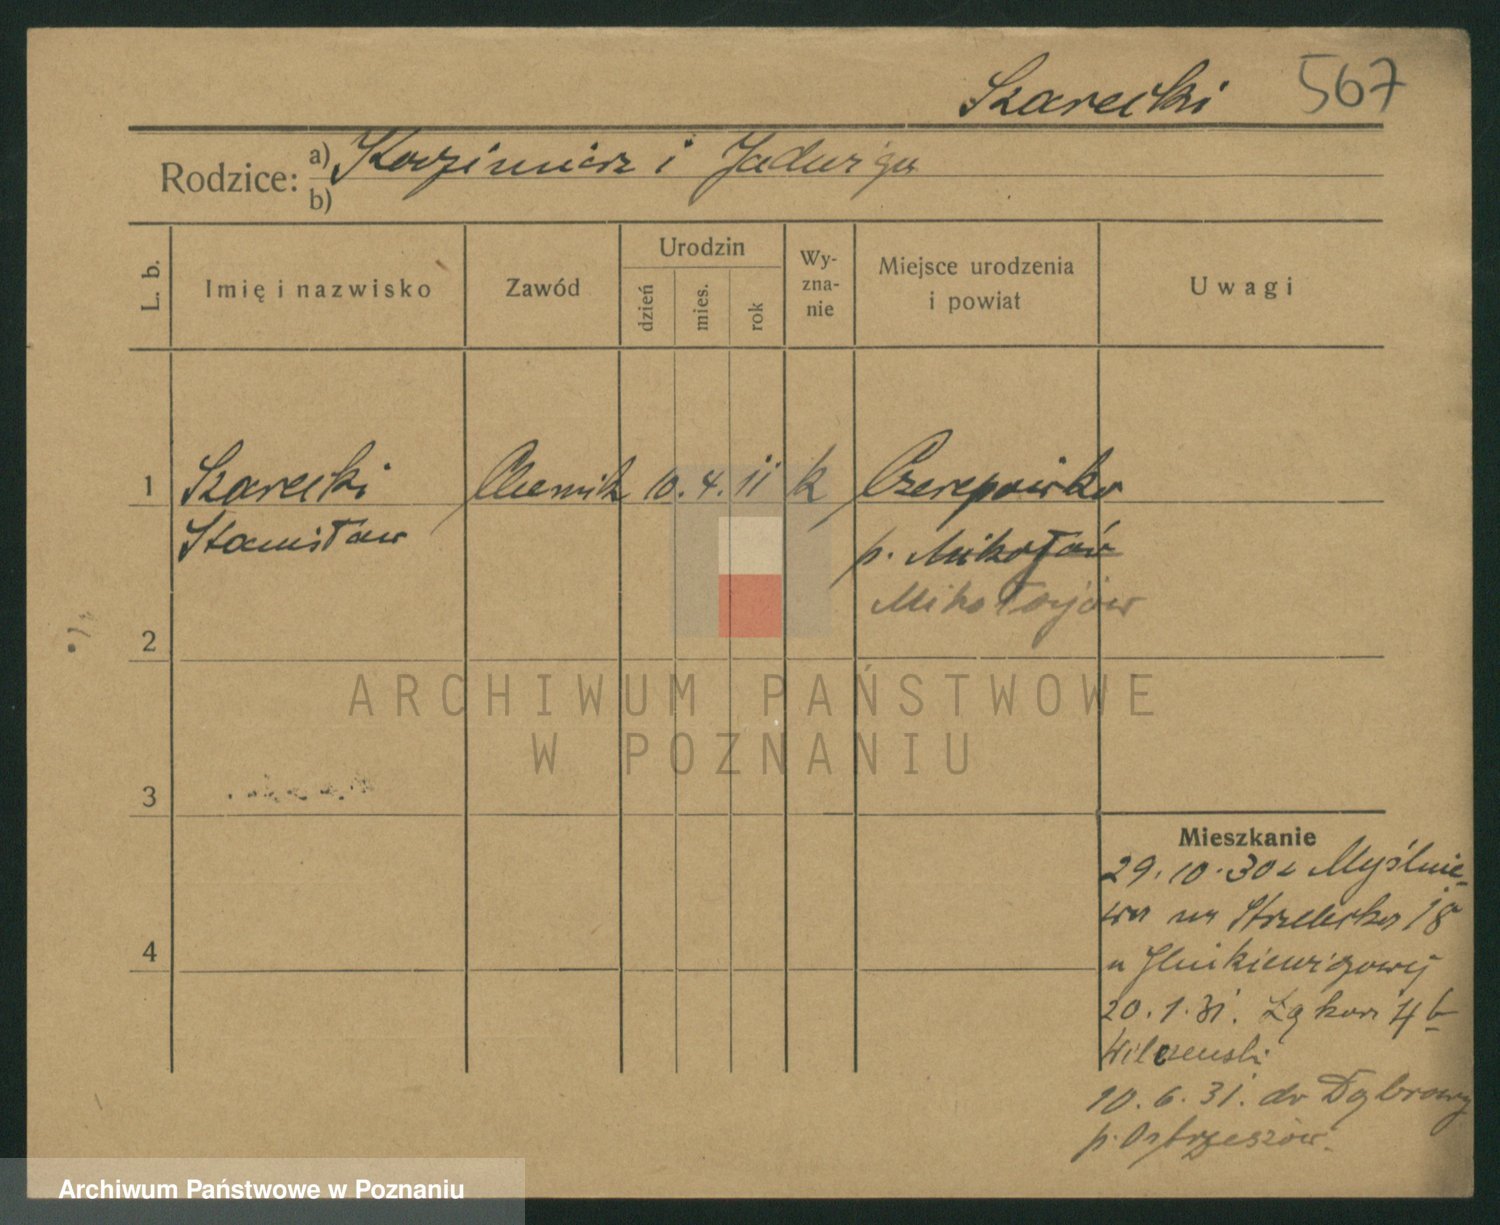 Szarecki 567
Rodzice: a) Kazimierz i Jadwiga
b)
L. b. Imię i nazwisko Zawód Urodzin dzień mies. rok Wy-zna-nie Miejsce urodzenia i powiat Uwagi
1 Szarecki Chemik 10. 4. 11 k Czerepówka
Stanisław p. Mikołaów
Mikołajów
2
ARCHIWUM PAŃSTWOWE
W POZNANIU
3
Mieszkanie
29.10.30 z Myślnie-
wa na Strzelecka 18
4
u
20.1.31. Łąkowa 4b
10.6.31. do Dąbrowy
p. Ostrzeszów.
Archiwum Państwowe w Poznaniu